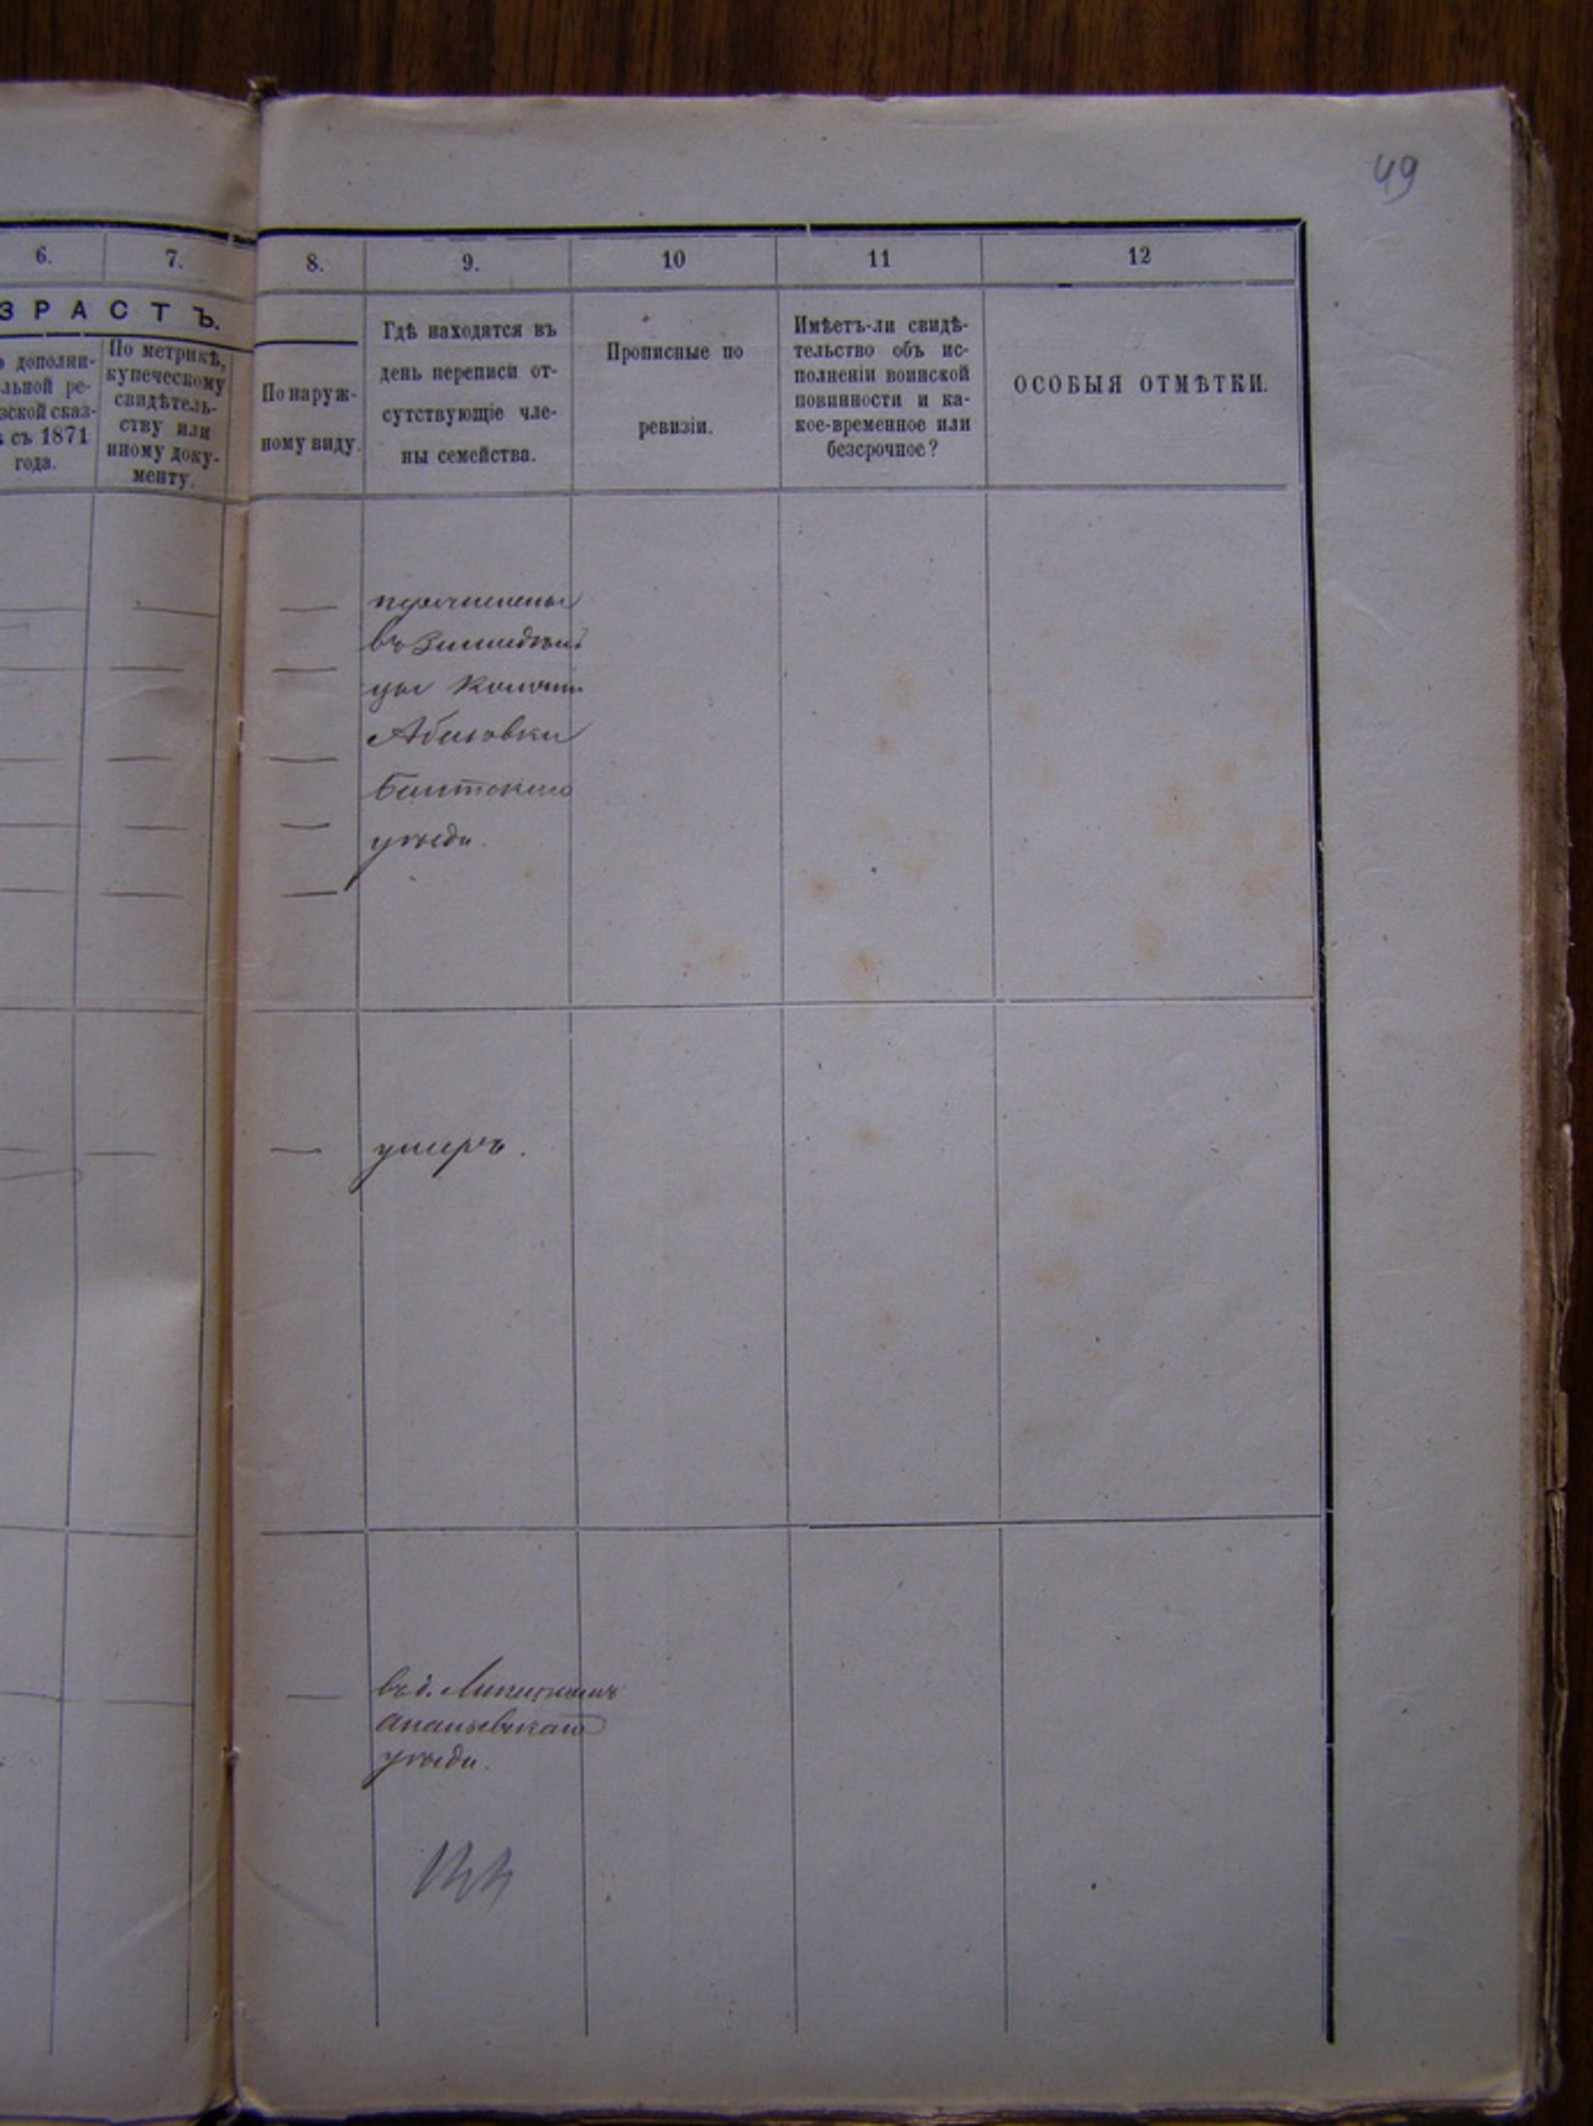 49
6. 7. 8. 9. 10 11 12
ЗРАСТЪ.
дополни-
льной ре-
зской сказ-
съ 1871
года.
По метрикѣ,
купеческому
свидѣтель-
ству или
иному доку-
менту.
По наруж-
ному виду.
Гдѣ находятся въ
день переписи от-
сутствующіе чле-
ны семейства.
Прописные по
ревизіи.
Имѣетъ-ли свидѣ-
тельство объ ис-
полненіи воинской
повинности и ка-
кое-временное или
безсрочное?
ОСОБЫЯ ОТМѢТКИ.
перечислены
въ
Абизовки
Балтскаго
уѣзда.
умеръ.
въ д.
Ананьевскаго
уѣзда.